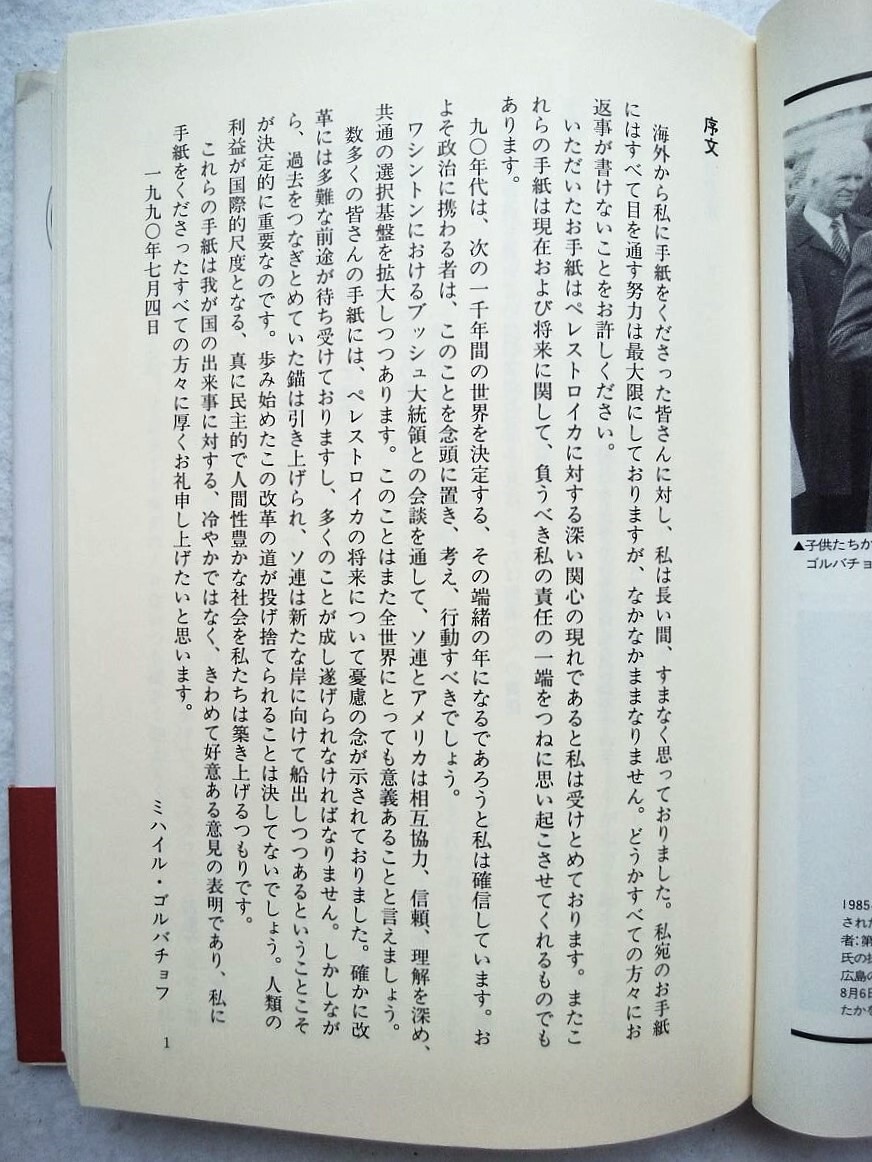 序文
海外から私に手紙をくださった皆さんに対し、私は長い間、すまなく思っておりました。私宛のお手紙
にはすべて目を通す努力は最大限にしておりますが、なかなかままなりません。どうかすべての方々にお
返事が書けないことをお許しください。
いただいたお手紙はペレストロイカに対する深い関心の現れであると私は受けとめております。またこ
れらの手紙は現在および将来に関して、負うべき私の責任の一端をつねに思い起こさせてくれるものでも
あります。
九〇年代は、次の一千年間の世界を決定する、その端緒の年になるであろうと私は確信しています。お
よそ政治に携わる者は、このことを念頭に置き、考え、行動すべきでしょう。
ワシントンにおけるブッシュ大統領との会談を通して、ソ連とアメリカは相互協力、信頼、理解を深め、
共通の選択基盤を拡大しつつあります。このことはまた全世界にとっても意義あることと言えましょう。
数多くの皆さんの手紙には、ペレストロイカの将来について憂慮の念が示されておりました。確かに改
革には多難な前途が待ち受けておりますし、多くのことが成し遂げられなければなりません。しかしなが
ら、過去をつなぎとめていた錨は引き上げられ、ソ連は新たな岸に向けて船出しつつあるということこそ
が決定的に重要なのです。歩み始めたこの改革の道が投げ捨てられることは決してないでしょう。人類の
利益が国際的尺度となる、真に民主的で人間性豊かな社会を私たちは築き上げるつもりです。
これらの手紙は我が国の出来事に対する、冷やかではなく、きわめて好意ある意見の表明であり、私に
手紙をくださったすべての方々に厚くお礼申し上げたいと思います。
一九九〇年七月四日
ミハイル・ゴルバチョフ
1
▲子供たちか
ゴルバチョ
1985
された
者:第
氏の
広島の
8月6日
たかを